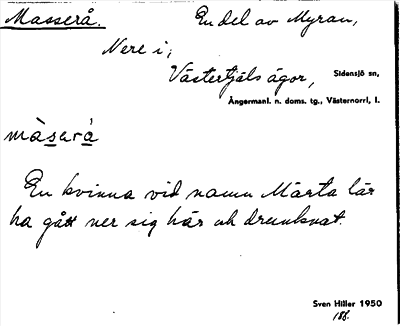 Masserå. En del av Myran,
Nere i,
Västertjäls ägor, Sidensjö sn,
Ångermanl. n. doms. tg., Västernorrl, l.
màsarå
En kvinna vid namn Märta lär
ha gått ner sig här och drunknat.
Sven Hiller 1950
188.